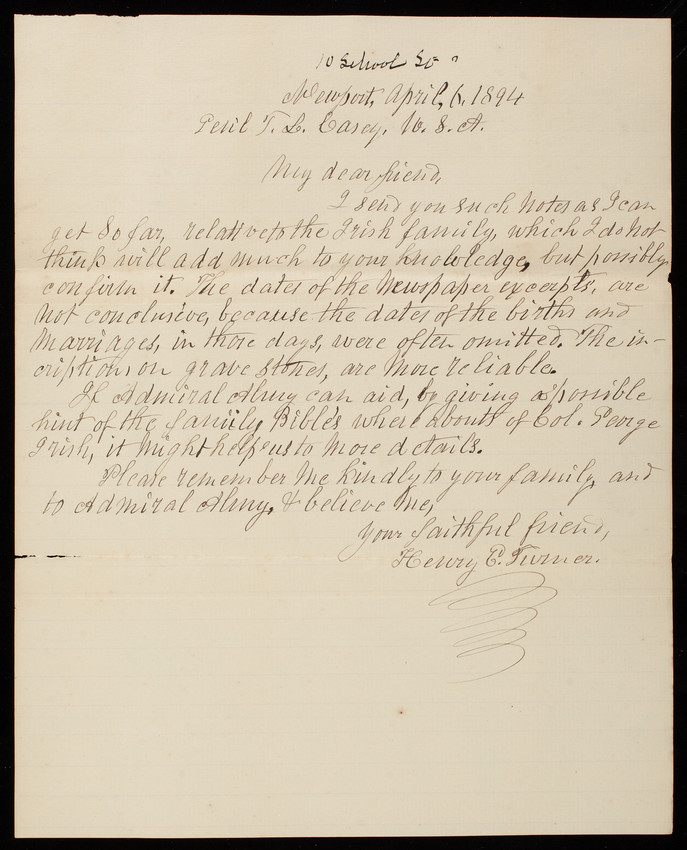 10 School St
Newport, April, 6, 1894
Genl T. L. Casey, U. S. A.
My dear friend,
I send you such notes as I can
get so far, relative to the Irish family, which I do not
think will add much to your knowledge, but possibly
confirm it. The dates of the Newspaper excerpts, are
not conclusive, because the dates of the births and
Marriages, in those days, were often omitted. The in-
criptions on grave stones, are more reliable.
If Admiral Almy can aid, by giving a possible
hint of the family Bible's whereabouts of Col. George
Irish, it might help us to more details.
Please remember me kindly to your family and
to Admiral Almy, & believe me,
your faithful friend,
Henry E. Turner.